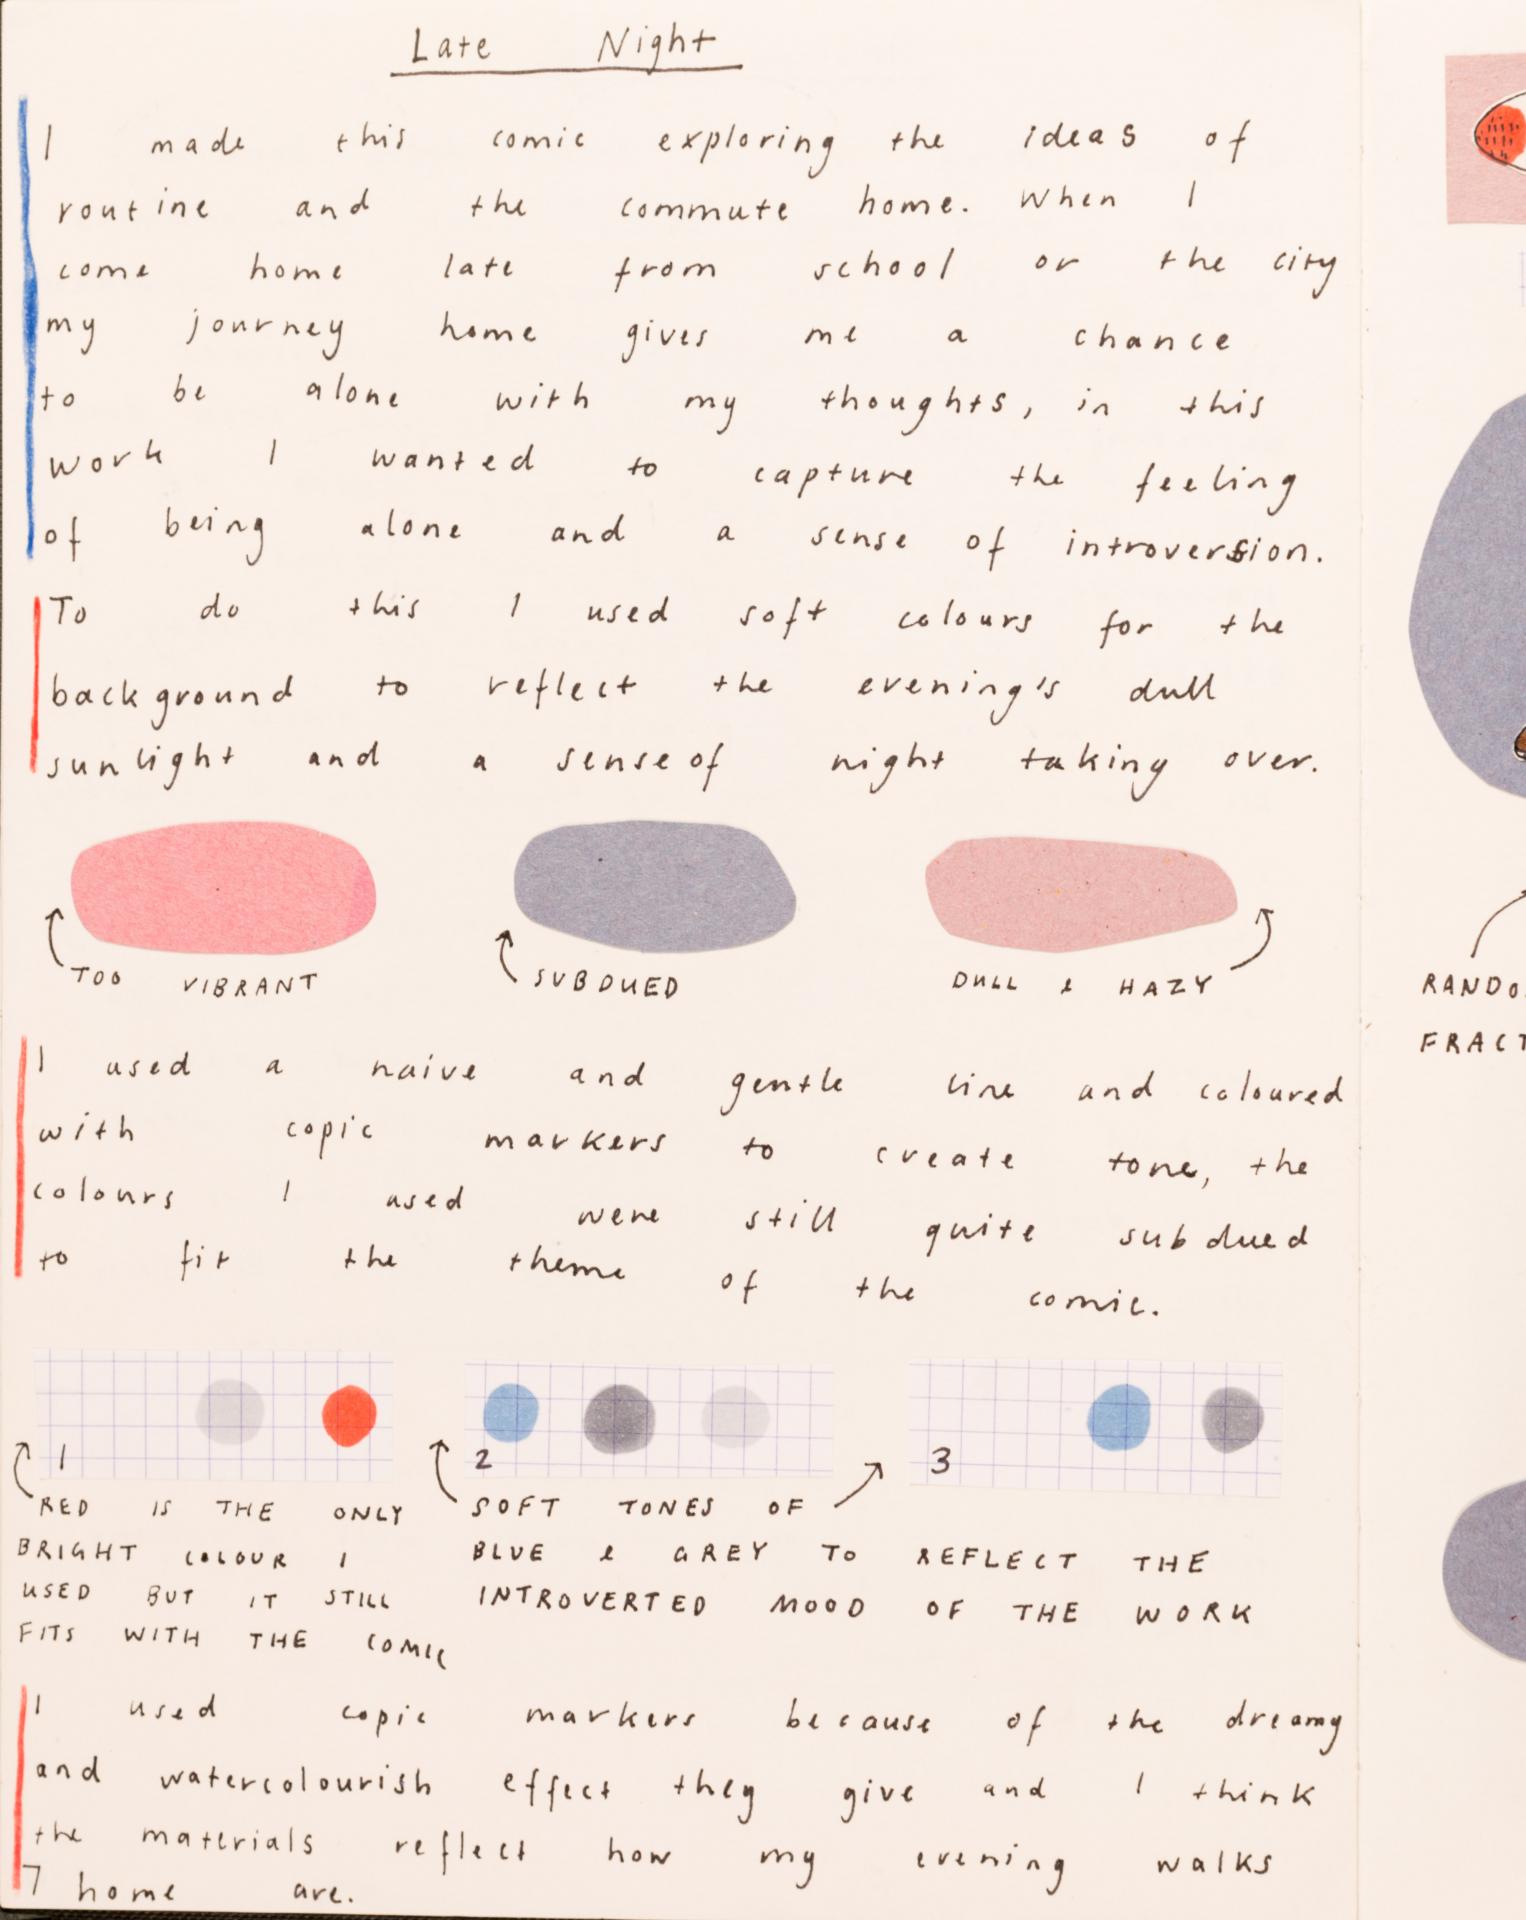 Late Night
I made this comic exploring the ideas of
routine and the commute home. When I
come home late from school or the city
my journey home gives me a chance
to be alone with my thoughts, in this
work I wanted to capture the feeling
of being alone and a sense of introversion.
To do this I used soft colours for the
background to reflect the evening's dull
sunlight and a sense of night taking over.
TOO VIBRANT
SUBDUED
DULL & HAZY
I used a naive and gentle line and coloured
with copic markers to create tone, the
colours I used were still quite subdued
to fit the theme of the comic.
1
RED IS THE ONLY
BRIGHT COLOUR I
USED BUT IT STILL
FITS WITH THE COMIC
2
3
SOFT TONES OF
BLUE & GREY TO REFLECT THE
INTROVERTED MOOD OF THE WORK
I used copic markers because of the dreamy
and watercolourish effect they give and I think
the materials reflect how my evening walks
home are.